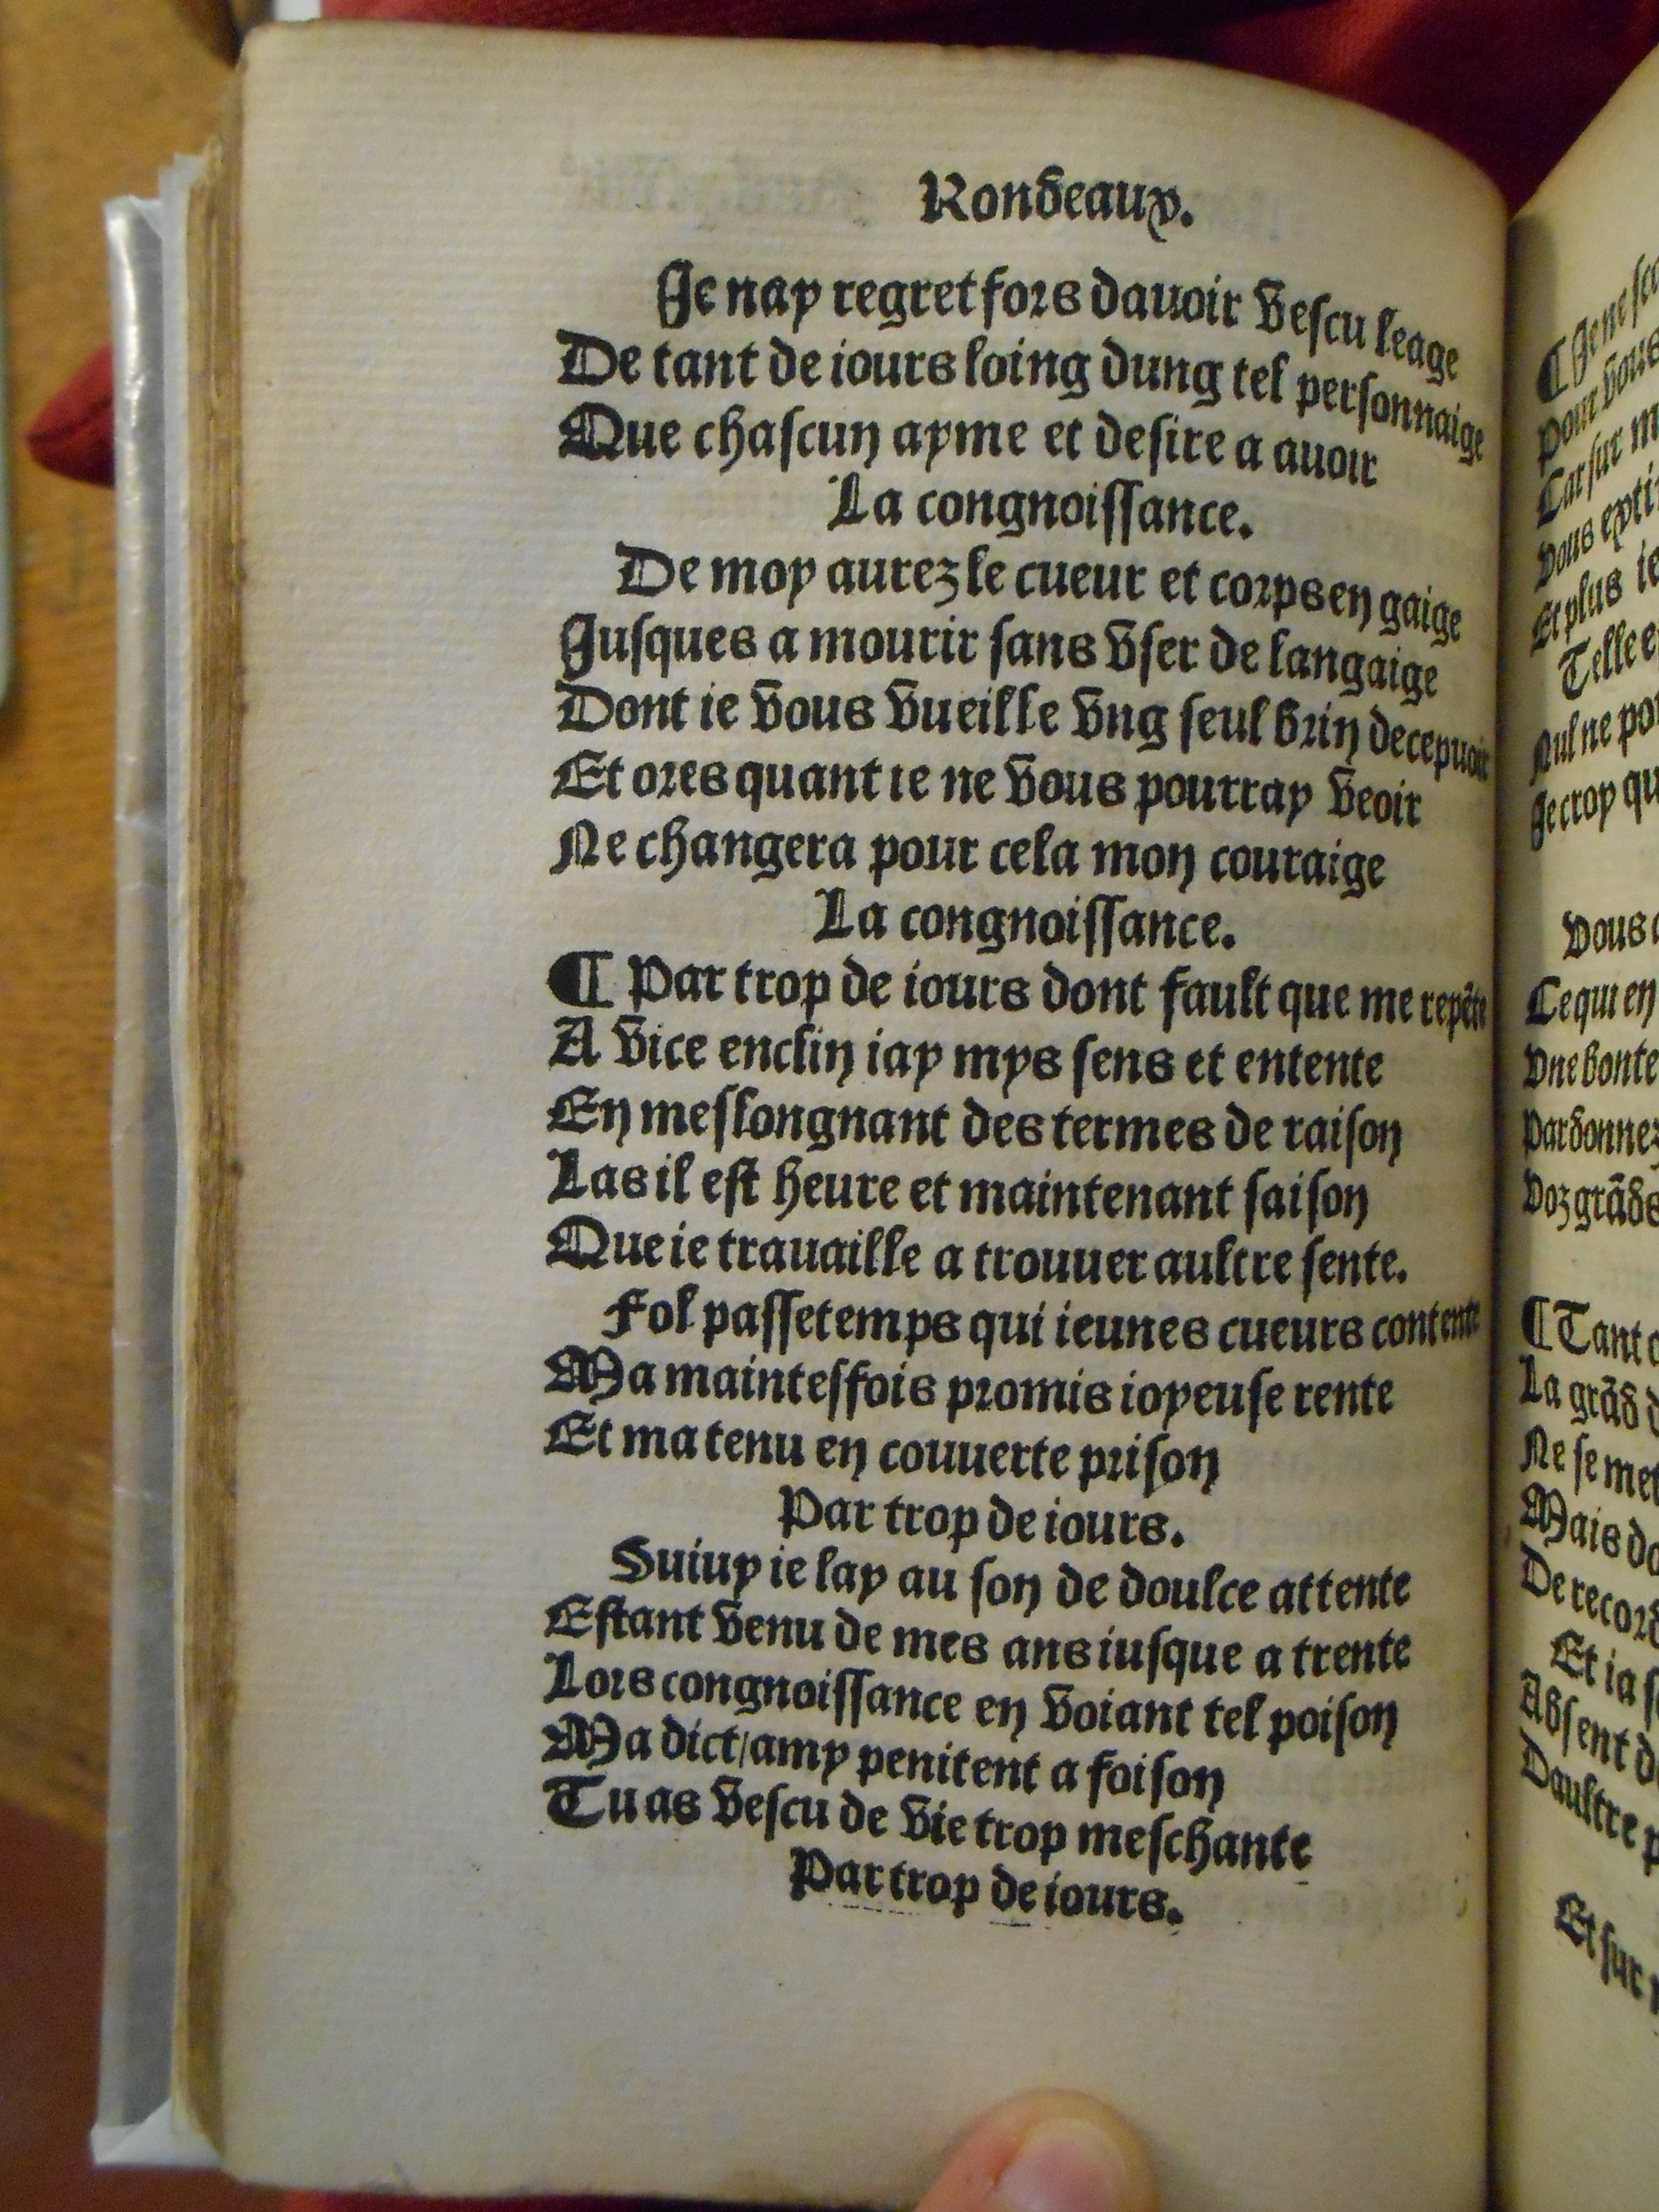 Rondeaux.
Je nay regret fors dauoir vescu leage
De tant de iours loing dung tel personnaige
Que chascun ayme et desire a auoir
La congnoissance.
De moy aurez le cueur et corps en gaige
Jusques a mourir sans vser de langaige
Dont ie vous vueille vng seul brin decepuoir
Et ores quant ie ne vous pourray veoir
Ne changera pour cela mon couraige
La congnoissance.
¶ Par trop de iours dont fault que me repēte
A vice enclin iay mys sens et entente
En meslongnant des termes de raison
Las il est heure et maintenant saison
Que ie trauaille a trouuer aultre sente.
Fol passetemps qui ieunes cueurs contente
Ma maintesfois promis ioyeuse rente
Et ma tenu en couuerte prison
Par trop de iours.
Suiuy ie lay au son de doulce attente
Estant venu de mes ans iusque a trente
Lors congnoissance en voiant tel poison
Ma dict/amy penitent a foison
Tu as vescu de vie trop meschante
Par trop de iours.
¶ Je ne
pour vous
Car sur
vous
Et plus ie
Telle
Nul ne
Je croy
vous
Ce qui en
vne bonte
pardonnez
voz grãds
¶ Tant
La grãd
Ne se
Mais
De
Et ia
Absent
Daultre
Et sur